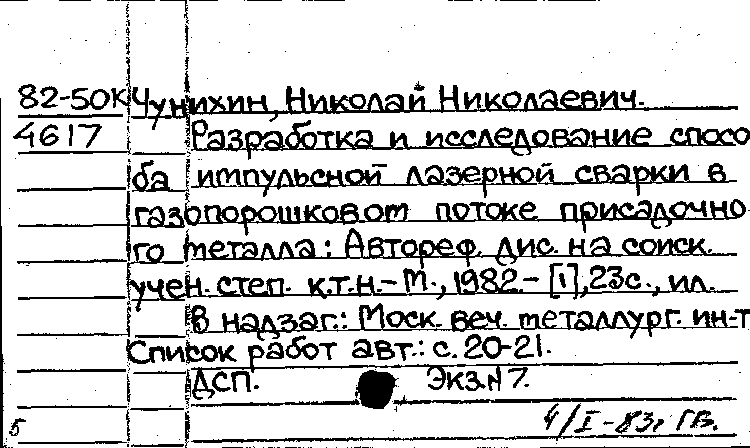 82-50К Чунихин, Николай Николаевич.
4617 Разработка и исследование спосо
ба импульсной лазерной сварки в
газопорошковом потоке присадочно
го металла: Автореф. дис. на соиск.
учен. степ. к.т.н.-М., 1982.-[1],23с., ил.
В надзаг.: Моск. веч. металлург. ин-т
Список работ авт.: с.20-21.
ДСП. Экз.N7.
4/I-83г ГВ.
5